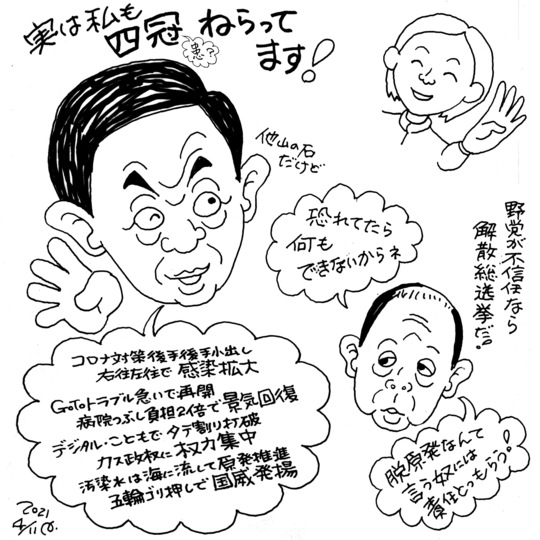 実は私も
四冠 ねらって
ます!
患?
他山の石
だけど
恐れてたら
何も
できないからネ
野党が不信任なら
解散総選挙だ!
コロナ対策後手後手小出し
右往左往で 感染拡大
GoToトラブル急いで再開
病院つぶし負担2倍で景気回復
デジタル・こどもでタテ割り打破
カス政权に 权力集中
汚染水は海に流して原発推進
五輪ゴリ押しで 国威発揚
脱原発なんて
言う奴には
責任とってもらう!
2021
4/11